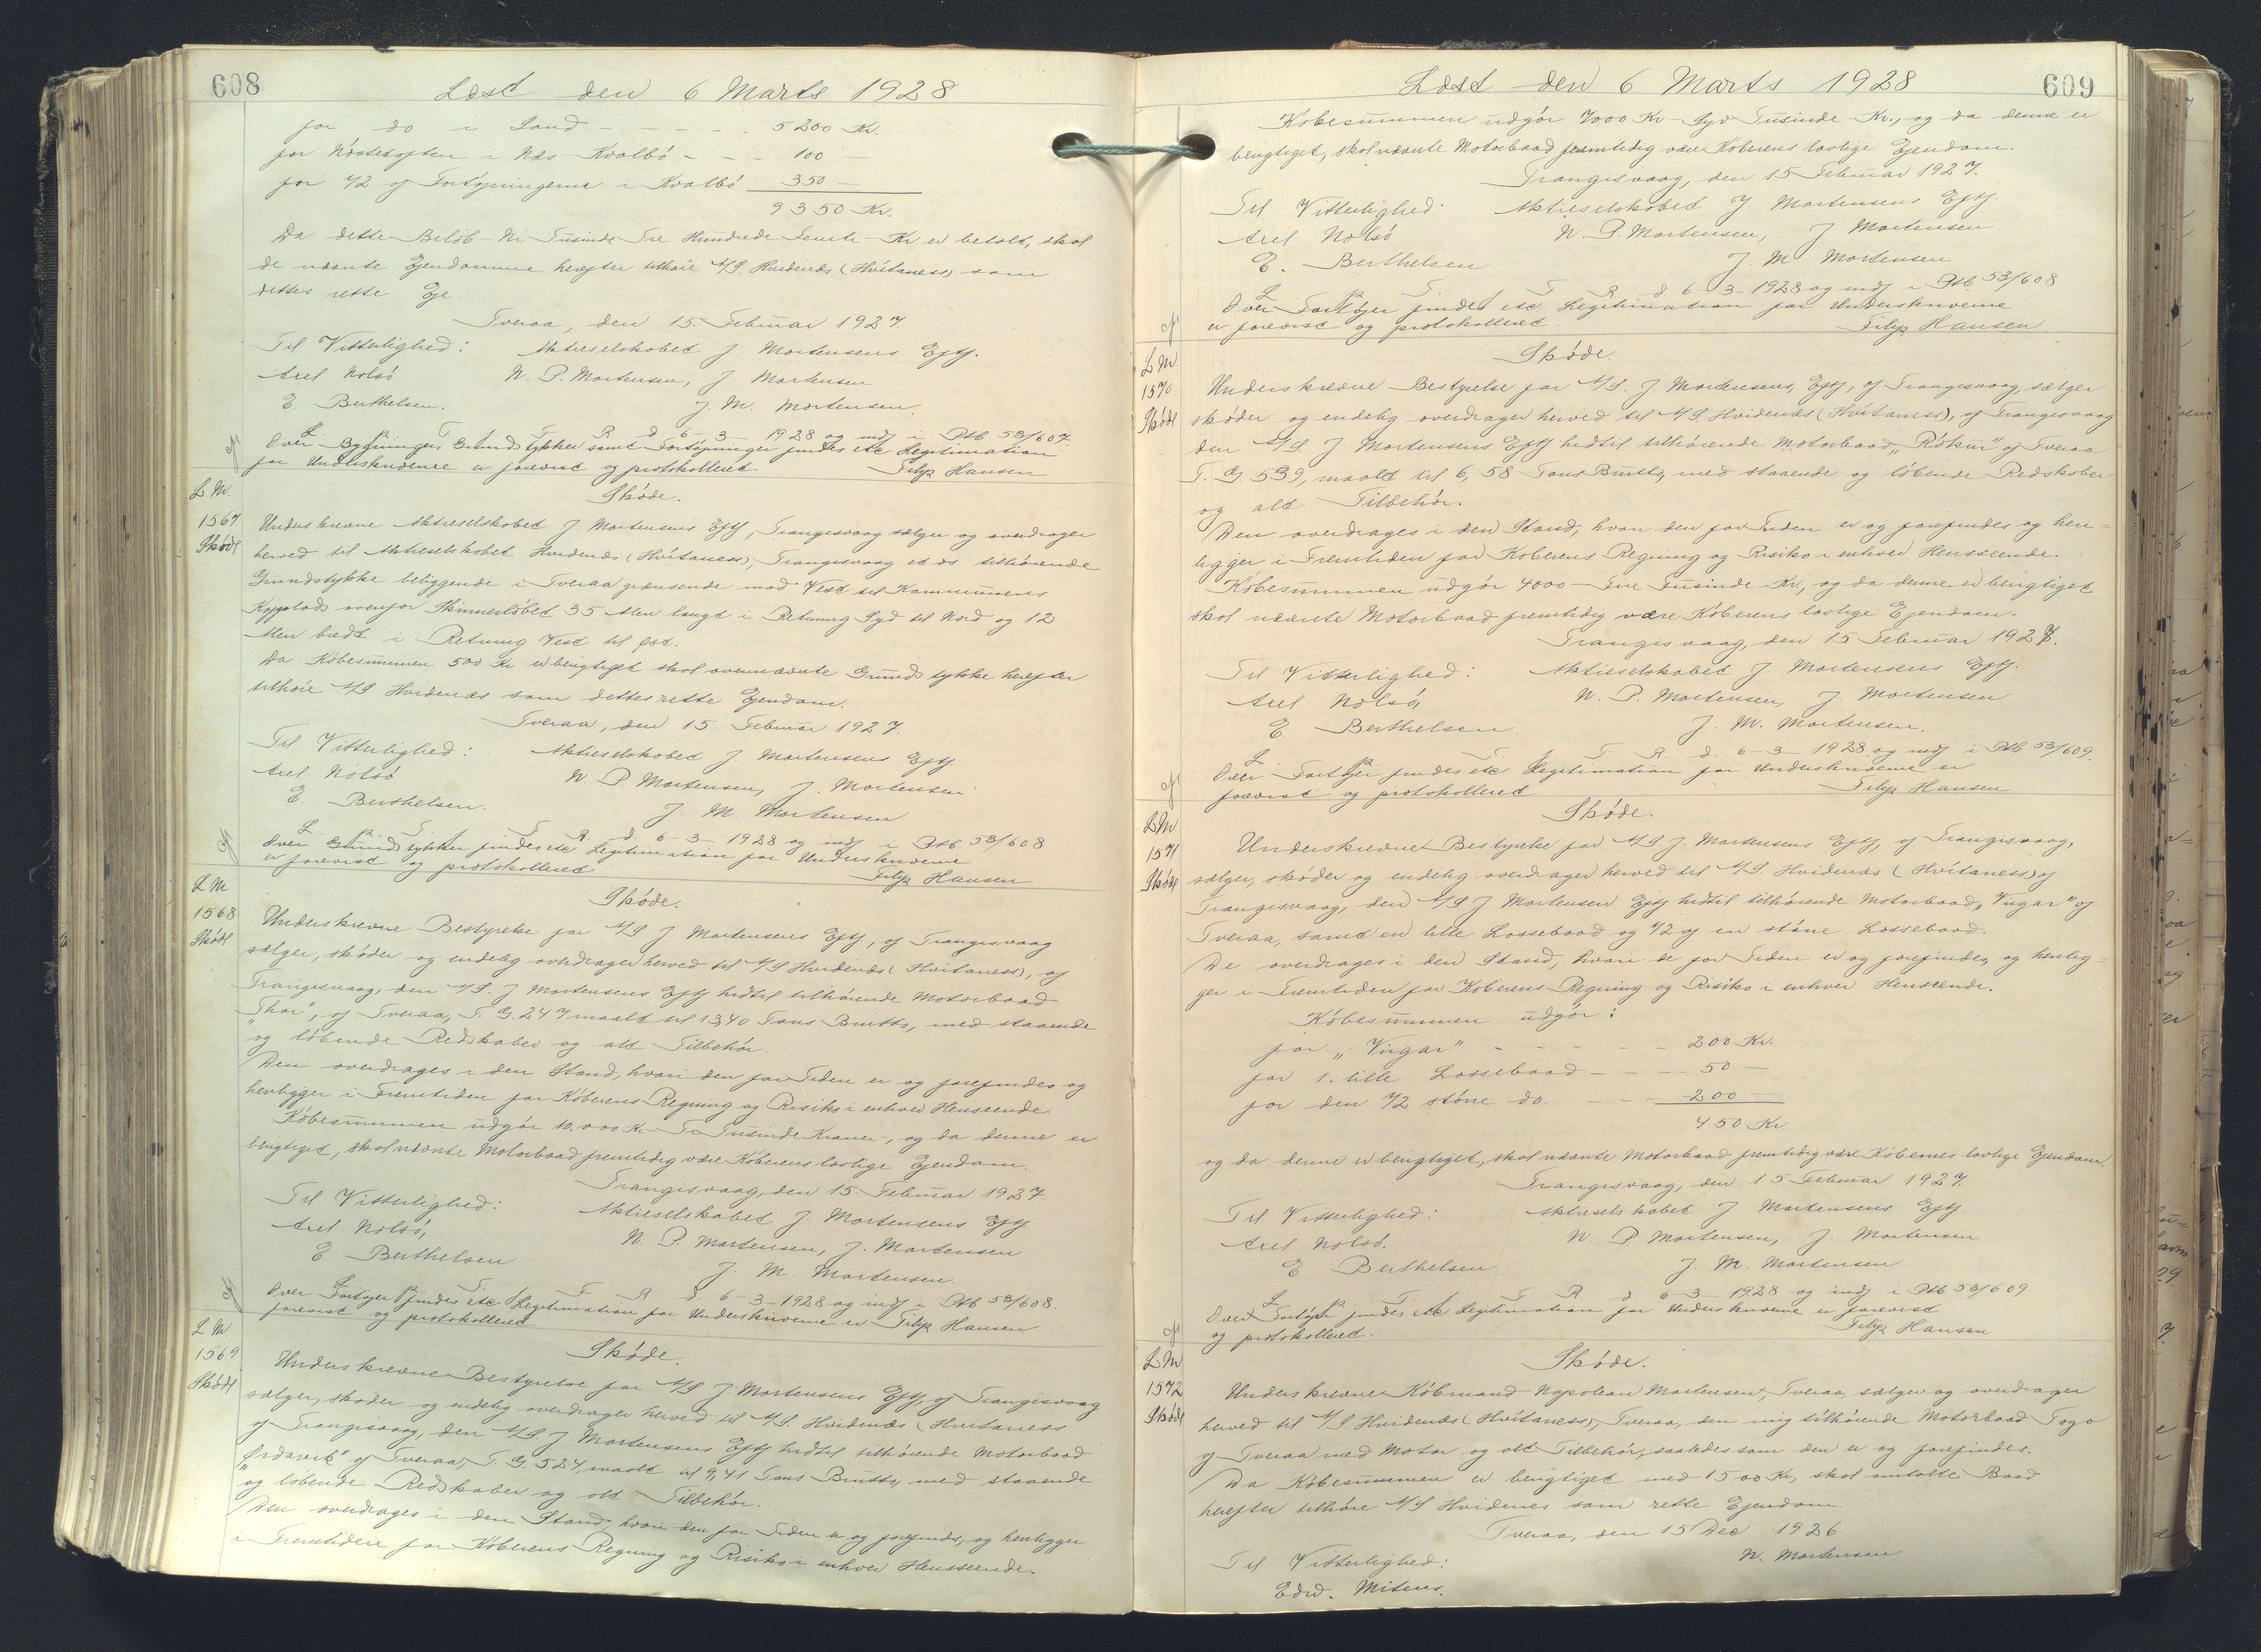 608
Læst den 6 Marts 1928
for do i Sand - - - - - 5200 Kr.
for Nóstetoften i Næs-Kvalbö - - - 100 -
for 1/2 af Fortöjningerne i Kvalbö 350 -
9350 Kr.
Da dette Belöb - Ni Tusinde Tre Hundrede Femti - Kr er betalt, skal
de nævnte Ejendomme herefter tilhöre A/S Hvidenæs (Hvítanes) som
dettes rette Eje
Tveraa, den 15. Februar 1927.
Til Vitterlighed: Aktieselskabet J. Mortensens Eftf.
Axel Nolsö N. P. Mortensen, J. Mortensen
E. Berthelsen. J. M. Mortensen.
L p T. i T R d 6-3-1928 og indf i Ptb 53/607.
Over Bygninger, Grundstykker samt Fortöjninger findes etc Legitimation
for Underskriverne er forevist og protokolleret. Filip Hansen
L No.
1567
Skóde
Skóde.
Underskrevne Aktieselskabet J Mortensens Eftf, Trangisvaag sælger og overdrager
herved til Aktieselskabet Hvidenæs (Hvítaness), Trangisvaag et os tilhörende
Grundstykke beliggende i Tveraa grænsende mod Vest til Kommunens
ovenfor Skinnerlöbet 35 Alen langt i Retning Syd til Nord og 12
Alen bredt i Retning Vest til Öst.
Da Köbesummen 500 Kr er berigtiget skal ovennævnte Grundstykke herefter
tilhöre A/S Hvidenæs som dettes rette Ejendom.
Tveraa, den 15 Februar 1927.
Til Vitterlighed: Aktieselskabet J Mortensens Eftf
Axel Nolsö N P Mortensen, J. Mortensen
E. Berthelsen. J. M. Mortensen
L p T. i T R. d. 6-3-1928 og indf i Ptb 53/608
Over Grundstykker findes etc Legitimation for Underskriverne
er forevist og protokolleret Filip Hansen
L No
1568
Skóde
Skóde.
Underskrevne Bestyrelse for A/S J Mortensens Eftf, af Trangisvaag
sælger, sköder og endelig overdrager herved til A/S Hvidenæs (Hvítaness), af
Trangisvaag, den A/S. J Mortensens Eftf hidtil tilhörende Motorbaad
"Thor", af Tveraa, T. G. 247 maalt til 13,40 Tons Brutto, med staaende
og löbende Redskaber og alt Tilbehör.
Den overdrages i den Stand, hvori den for Tiden er og forefindes og
henligger i Fremtiden for Köberens Regning og Risiko i enhver Henseende.
Köbesummen udgör 10.000 Kr - Ti Tusinde Kroner -, og da denne er
berigtiget, skal nævnte Motorbaad fremtidig være Köberens lovlige Ejendom.
Trangisvaag, den 15. Februar 1927
Til Vitterlighed: Aktieselskabet J. Mortensens Eftf
Axel Nolsö, N. P. Mortensen, J. Mortensen
E Berthelsen J. M. Mortensen.
L p T. i T R d. 6-3-1928 og indf i Ptb 53/608.
Over Fartöjer findes etc Legitimation for Underskriverne er
forevist og protokolleret Filip Hansen
L No.
1569
Skóde
Skóde.
Underskrevne Bestyrelse for A/S J Mortensens Eftf, af Trangisvaag
sælger, sköder og endelig overdrager herved til A/S. Hvidenæs (Hvítaness
af Trangisvaag, den A/S J. Mortensens Eftf hidtil tilhörende Motorbaad
"Ördavík" af Tveraa, T. G. 524, maalt til 9,41 Tons Brutto, med staaende
og löbende Redskaber og alt Tilbehör.
Den overdrages i den Stand, hvori den for Tiden er og forefindes, og henligger
i Fremtiden for Köberens Regning og Risiko i enhver Henseende.
609
Læst den 6 Marts 1928
Köbesummen udgör 7000 Kr - Syv Tusinde - Kr., og da denne er
berigtiget, skal nævnte Motorbaad fremtidig være Köberens lovlige Ejendom.
Trangisvaag, den 15 Februar 1927.
Til Vitterlighed: Aktieselskabet J Mortensens Eftf.
Axel Nolsö N. P. Mortensen, J Mortensen
E. Berthelsen J. M Mortensen
L p T. i T R d 6-3-1928 og indf i Ptb 53/608
Over Fartöjer findes etc Legitimation for Underskriverne
er forevist og protokolleret. Filip Hansen
L No
1570
Skóde
Skóde.
Underskrevne Bestyrelse for A/S. J. Mortensens, Eftf, af Trangisvaag, sælger
sköder og endelig overdrager herved til A/S. Hvidenæs (Hvítaness), af Trangisvaag
den A/S. J Mortensens Eftf hidtil tilhörende Motorbaad "Rókur" af Tveraa
T. G. 539, maalt til 6,58 Tons Brutto, med staaende og löbende Redskaber
og alt Tilbehör.
Den overdrages i den Stand, hvori den for Tiden er og forefindes og hen=
ligger i Fremtiden for Köberens Regning og Risiko i enhver Henseende.
Köbesummen udgör 4000 - Fire Tusinde - Kr., og da denne er berigtiget
skal nævnte Motorbaad fremtidig være Köberens lovlige Ejendom.
Trangisvaag, den 15 Februar 1927.
Til Vitterlighed: Aktieselskabet J. Mortensens Eftf.
Axel Nolsö, N. P. Mortensen, J. Mortensen
E Berthelsen. J. M. Mortensen.
L p T. i T R d. 6-3-1928 og indf i Ptb 53/609.
Over Fartöjer findes etc Legitimation for Underskriverne er
forevist og protokolleret Filip Hansen
L No
1571
Skóde
Skóde.
Underskrevne Bestyrelse for A/S J Mortensens Eftf, af Trangisvaag,
sælger, sköder og endelig overdrager herved til A/S. Hvidenæs (Hvítaness) af
Trangisvaag, den A/S J Mortensen Eftf hidtil tilhörende Motorbaad "Virgar" af
Tveraa, samt en lille Lossebaad og 1/2 af en större Lossebaad.
De overdrages i den Stand, hvori de for Tiden er og forefindes, og henlig=
ger i Fremtiden for Köberens Regning og Risiko i enhver Henseende.
Köbesummen udgör:
for "Virgar" - - - - - 200 Kr.
for 1. lille Lossebaad - - - 50 -
for den 1/2 större do. - - - 200 -
450 Kr
og da denne er berigtiget, skal nævnte Motorbaad fremtidig være Köbernes lovlige Ejendom.
Trangisvaag, den 15 Februar 1927.
Til Vitterlighed: Aktieselskabet J Mortensens Eftf
Axel Nolsö. N. P Mortensen, J Mortensen
E Berthelsen J. M. Mortensen
L p T i T R d 6-3-1928 og indf i Ptb 53/609
Over Fartöjer findes etc Legitimation for Underskriverne er forevist
og protokolleret. Filip Hansen
L No
1572
Skóde
Skóde.
Underskrevne Köbmand Napolean Mortensen, Tveraa, sælger og overdrager
herved til A/S. Hvidenæs (Hvítaness), Tveraa, den mig tilhörende Motorbaad Togo
af Tveraa med Motor og alt Tilbehör, saaledes som den er og forefindes.
Da Köbesummen er berigtiget med 1500 Kr, skal omtalte Baad
herefter tilhöre A/S Hvidenes som rette Ejendom.
Tveraa, den 15 Dec 1926
N. Mortensen
Til Vitterlighed:
Edw. Mitens.